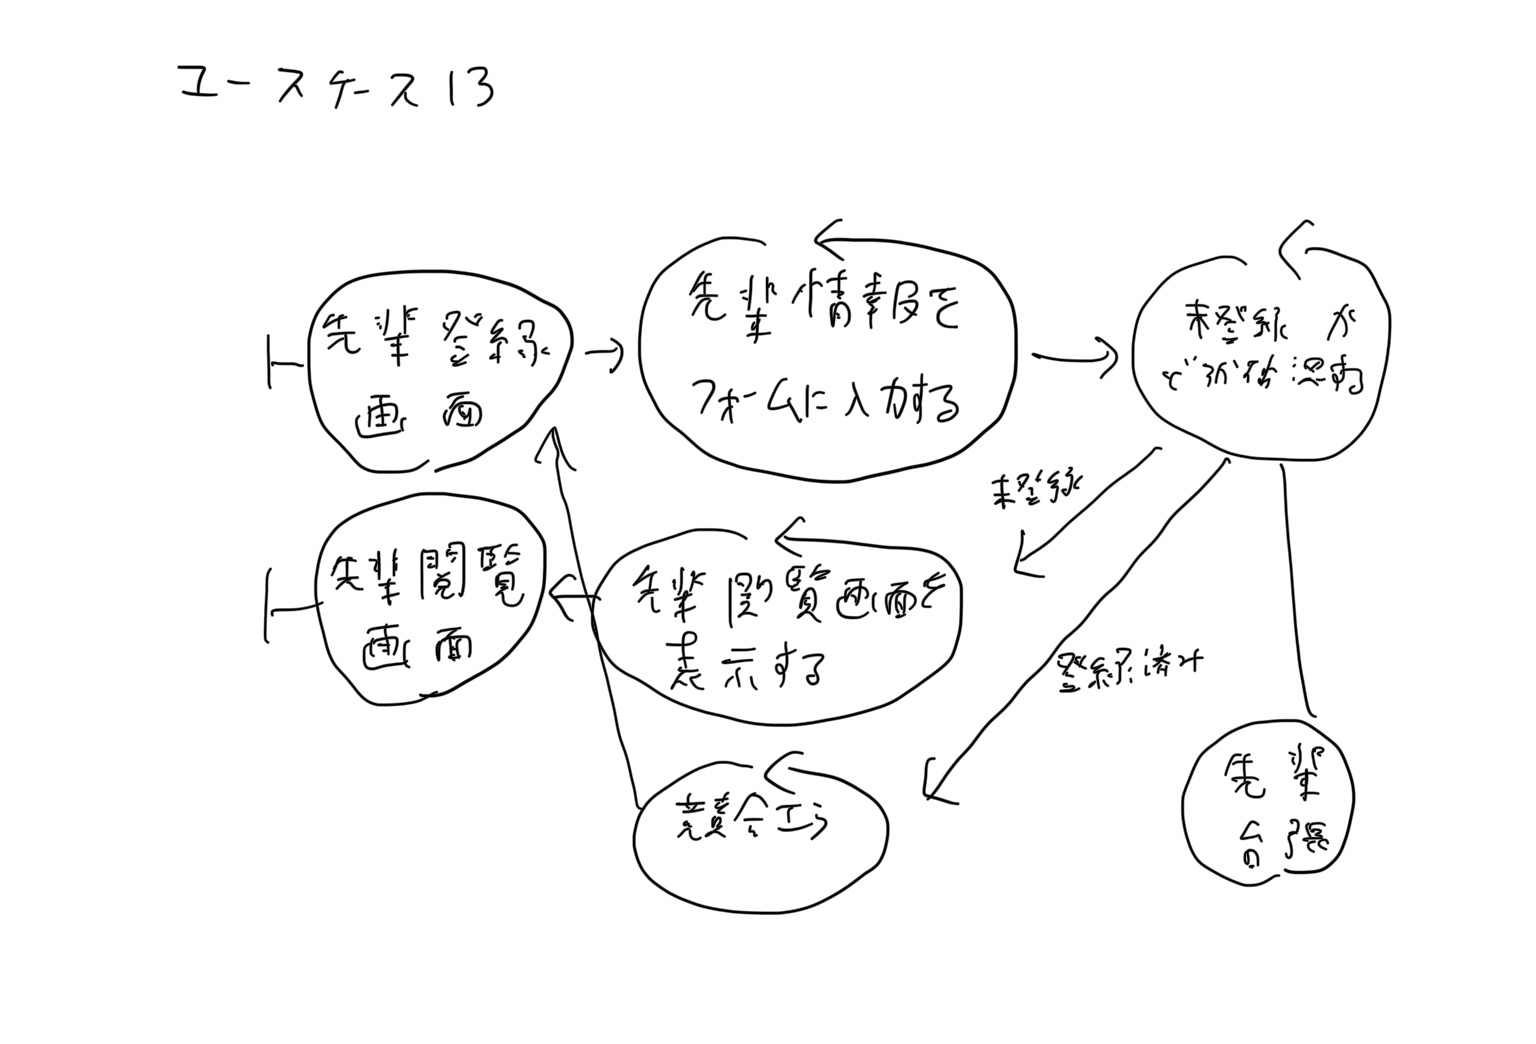 ユースケース13
先輩登録
画面
先輩情報を
フォームに入力する
未登録か
どうか確認する
未登録
先輩閲覧
画面
先輩閲覧画面を
表示する
登録済み
競合エラ
先輩
台帳